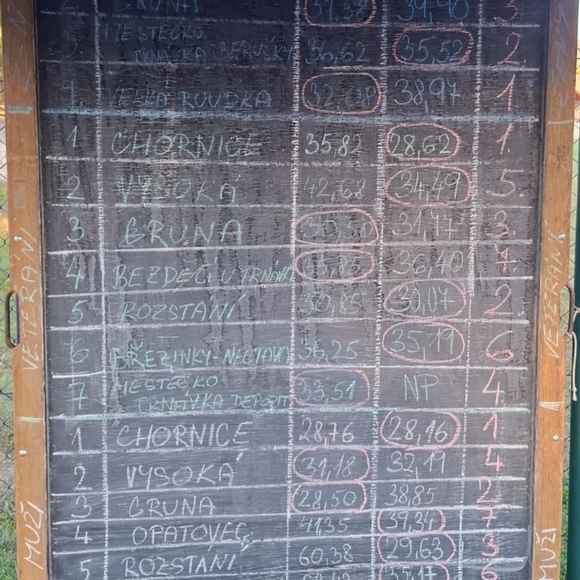 GRUNA 39,90 3
MĚSTEČKO
TRNÁVKA BERUŠKY 36,62 35,52 2
1. VELKÁ ROUDKA 38,97 1
1 CHORNICE 35,82 28,62 1.
2 VYSOKÁ 42,68 34,49 5.
3 GRUNA 31,47 3.
4 BEZDĚČÍ U TRNÁVKY 36,40 7.
5 ROZSTÁNÍ 30,85 30,07 2
6 BŘEZINKY-NECTAVA 36,25 35,19 6
7 MĚSTEČKO
TRNÁVKA DEPOZIT 33,51 NP 4
1 CHORNICE 28,76 28,16 1
2 VYSOKÁ 31,18 32,19 4
3 GRUNA 28,50 38,85 2
4 OPATOVEC 41,35 39,34 7
5 ROZSTÁNÍ 60,38 29,63 3
VETERÁNI
VETERÁNI
MUŽI
MUŽI